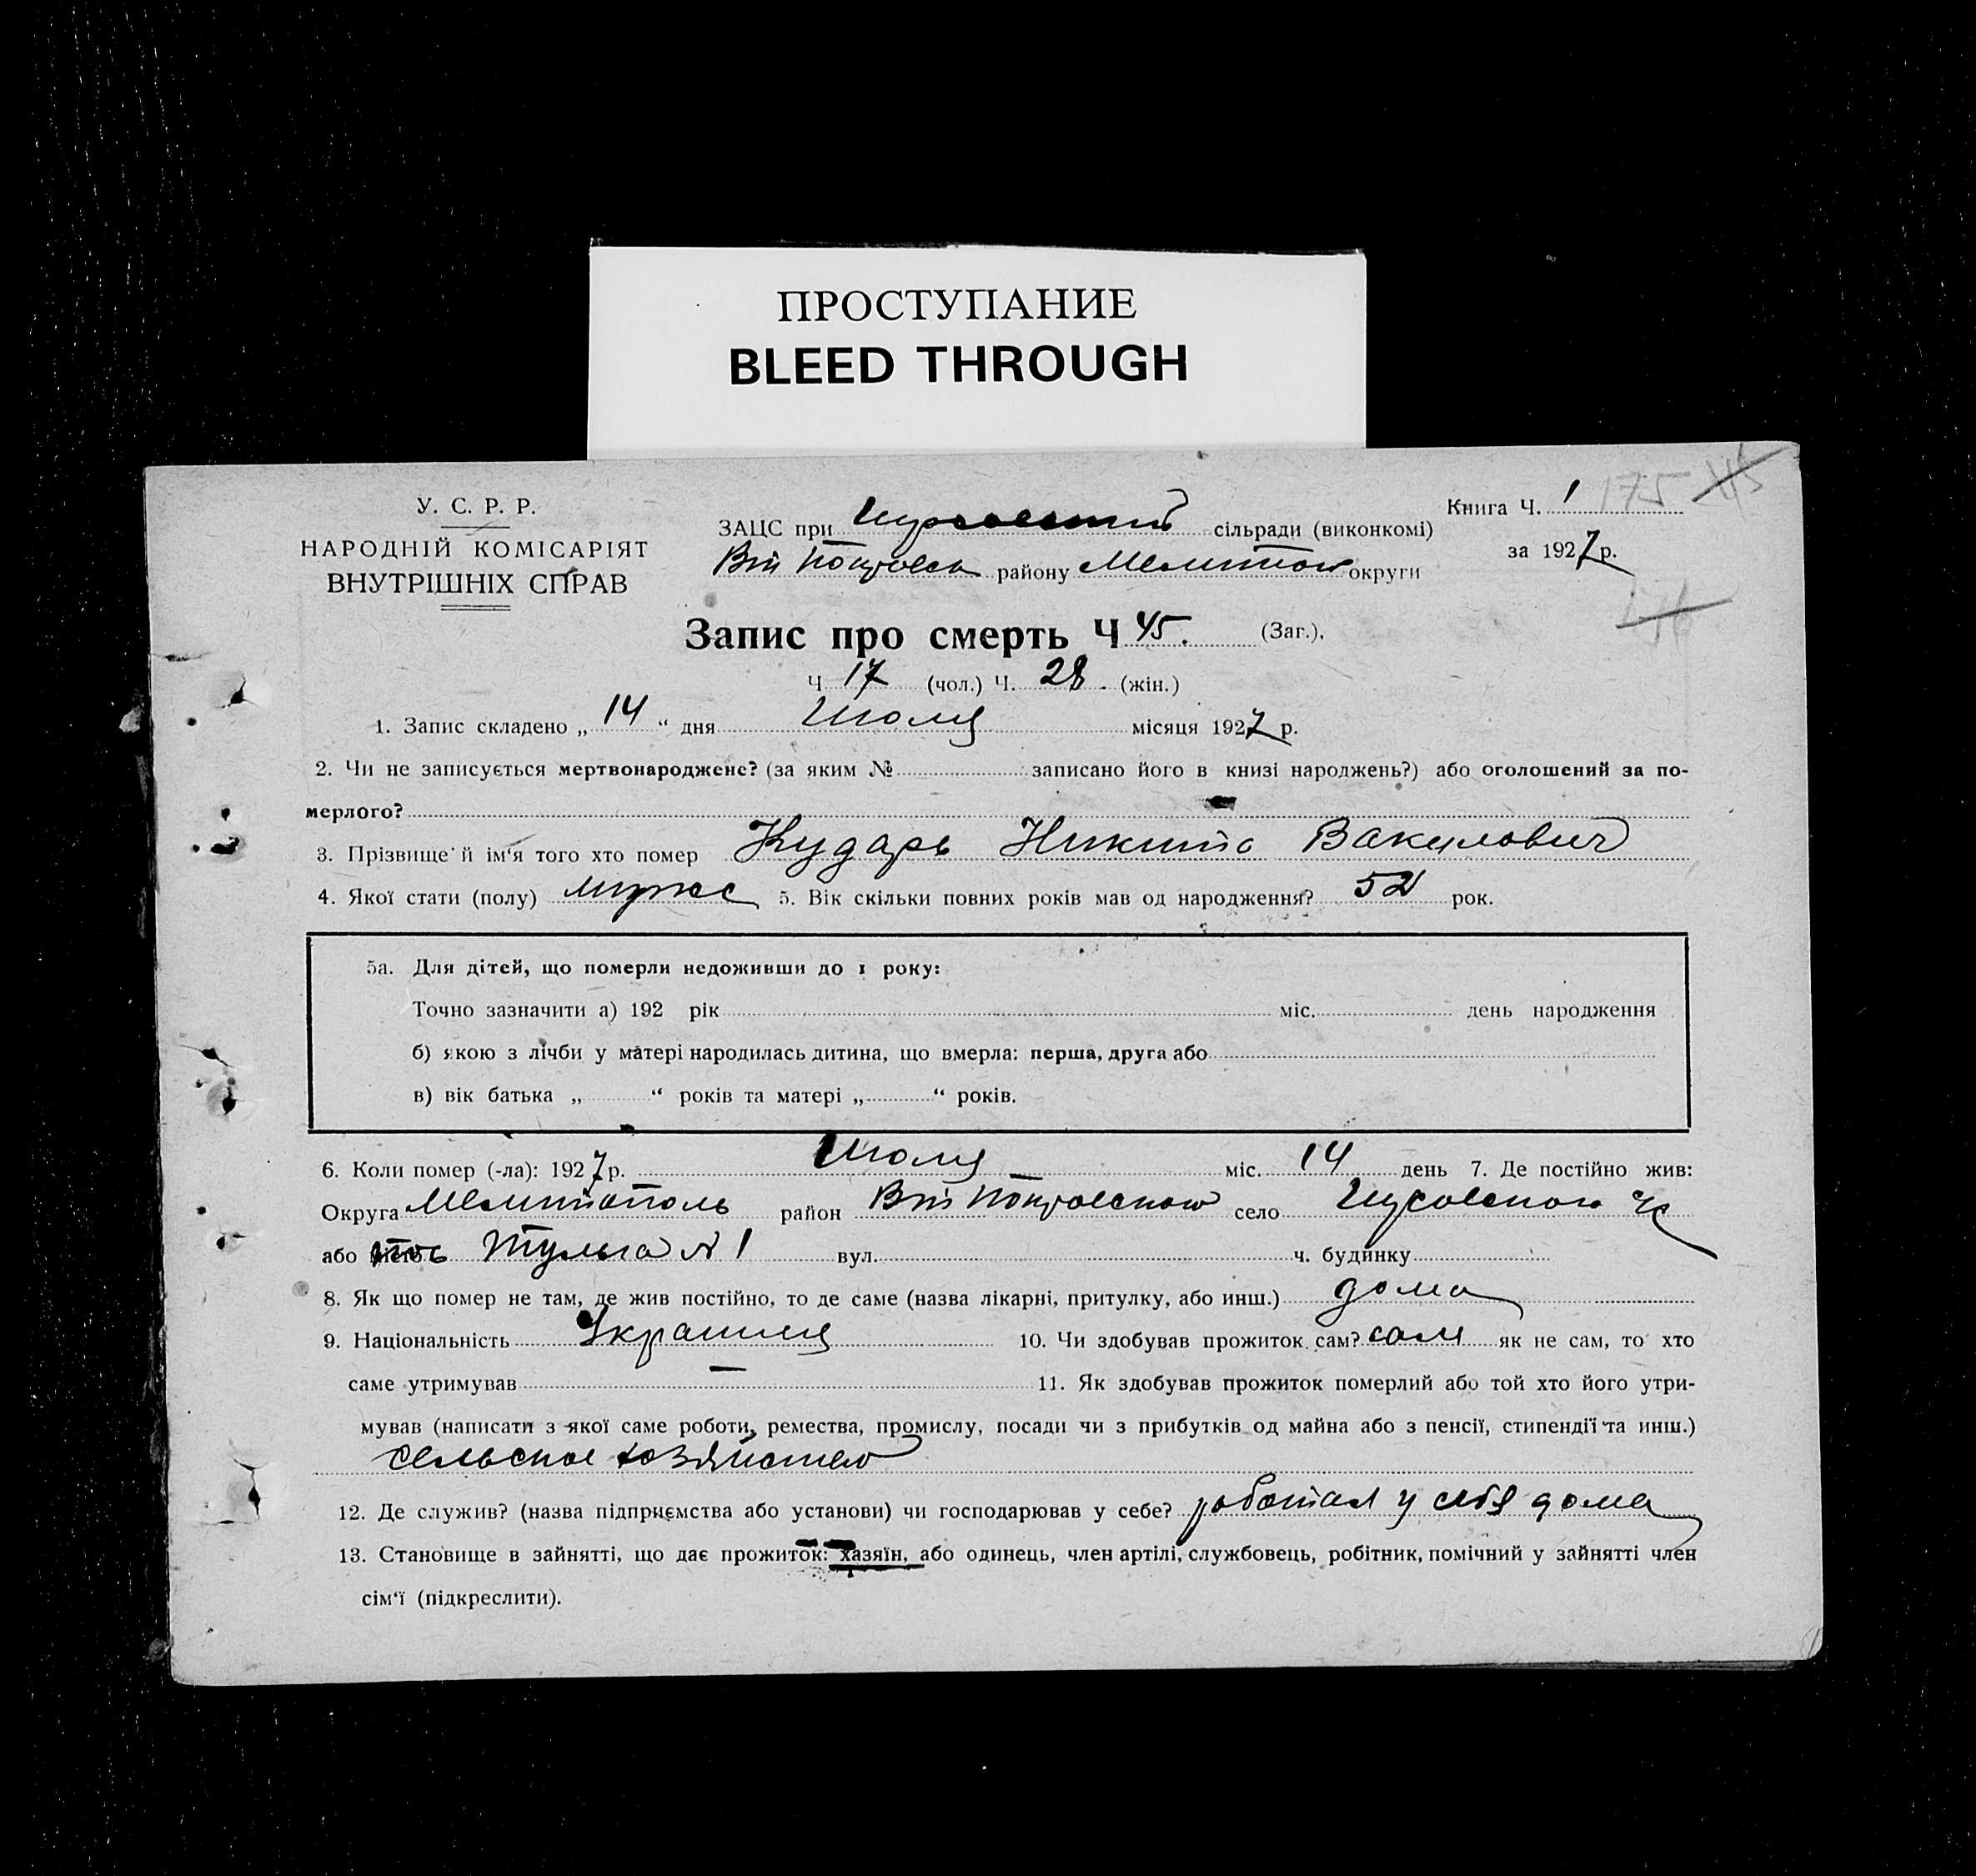 ПРОСТУПАНИЕ
BLEED THROUGH
У. С. Р. Р.
НАРОДНІЙ КОМІСАРІЯТ
ВНУТРІШНІХ СПРАВ
ЗАЦС при сільради (виконкомі)
району Мелитоп округи
Книга Ч. 1 175 45
за 1927 р.
Запис про смерть Ч 45. (Заг.).
Ч 17 (чол.) Ч. 28. (жін.)
1. Запис складено „ 14 “ дня Июля місяця 1927 р.
2. Чи не записується мертвонароджене? (за яким № записано його в книзі народжень?) або оголошений за по-
мерлого?
3. Прізвище й ім'я того хто помер Кударь Никита Вакулович
4. Якої стати (полу) мужс 5. Вік скільки повних років мав од народження? 52 рок.
5а. Для дітей, що померли недоживши до 1 року:
Точно зазначити а) 192 рік міс. день народження
б) якою з лічби у матері народилась дитина, що вмерла: перша, друга або
в) вік батька „ “ років та матері „ “ років.
6. Коли помер (-ла): 1927 р. Июля міс. 14 день 7. Де постійно жив:
Округа Мелитополь район село
або вул. ч. будинку
8. Як що помер не там, де жив постійно, то де саме (назва лікарні, притулку, або инш.) дома
9. Національність 10. Чи здобував прожиток сам? сам як не сам, то хто
саме утримував — 11. Як здобував прожиток померлий або той хто його утри-
мував (написати з якої саме роботи, ремества, промислу, посади чи з прибутків од майна або з пенсії, стипендії та инш.)
сельское хозяйство
12. Де служив? (назва підприємства або установи) чи господарював у себе? работал у себя дома
13. Становище в зайнятті, що дає прожиток: хазяїн, або одинець, член артілі, службовець, робітник, помічний у зайнятті член
сім'ї (підкреслити).